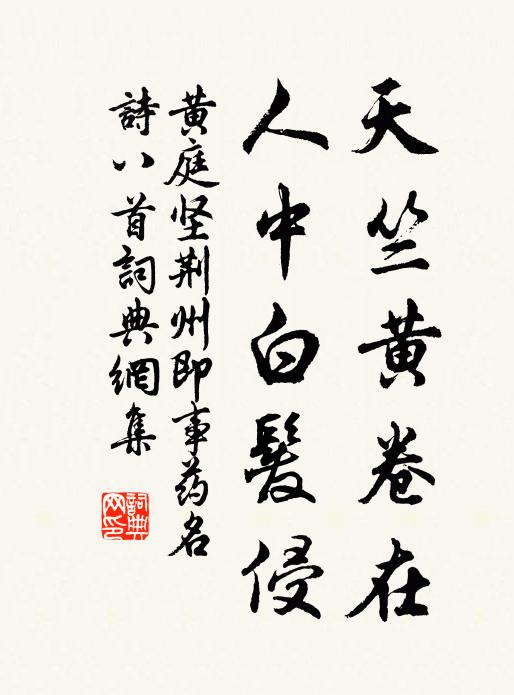 天竺黄卷在
人中白髮侵
黄庭坚荆州即事药名
詩八首詞典網集
詞典
网印